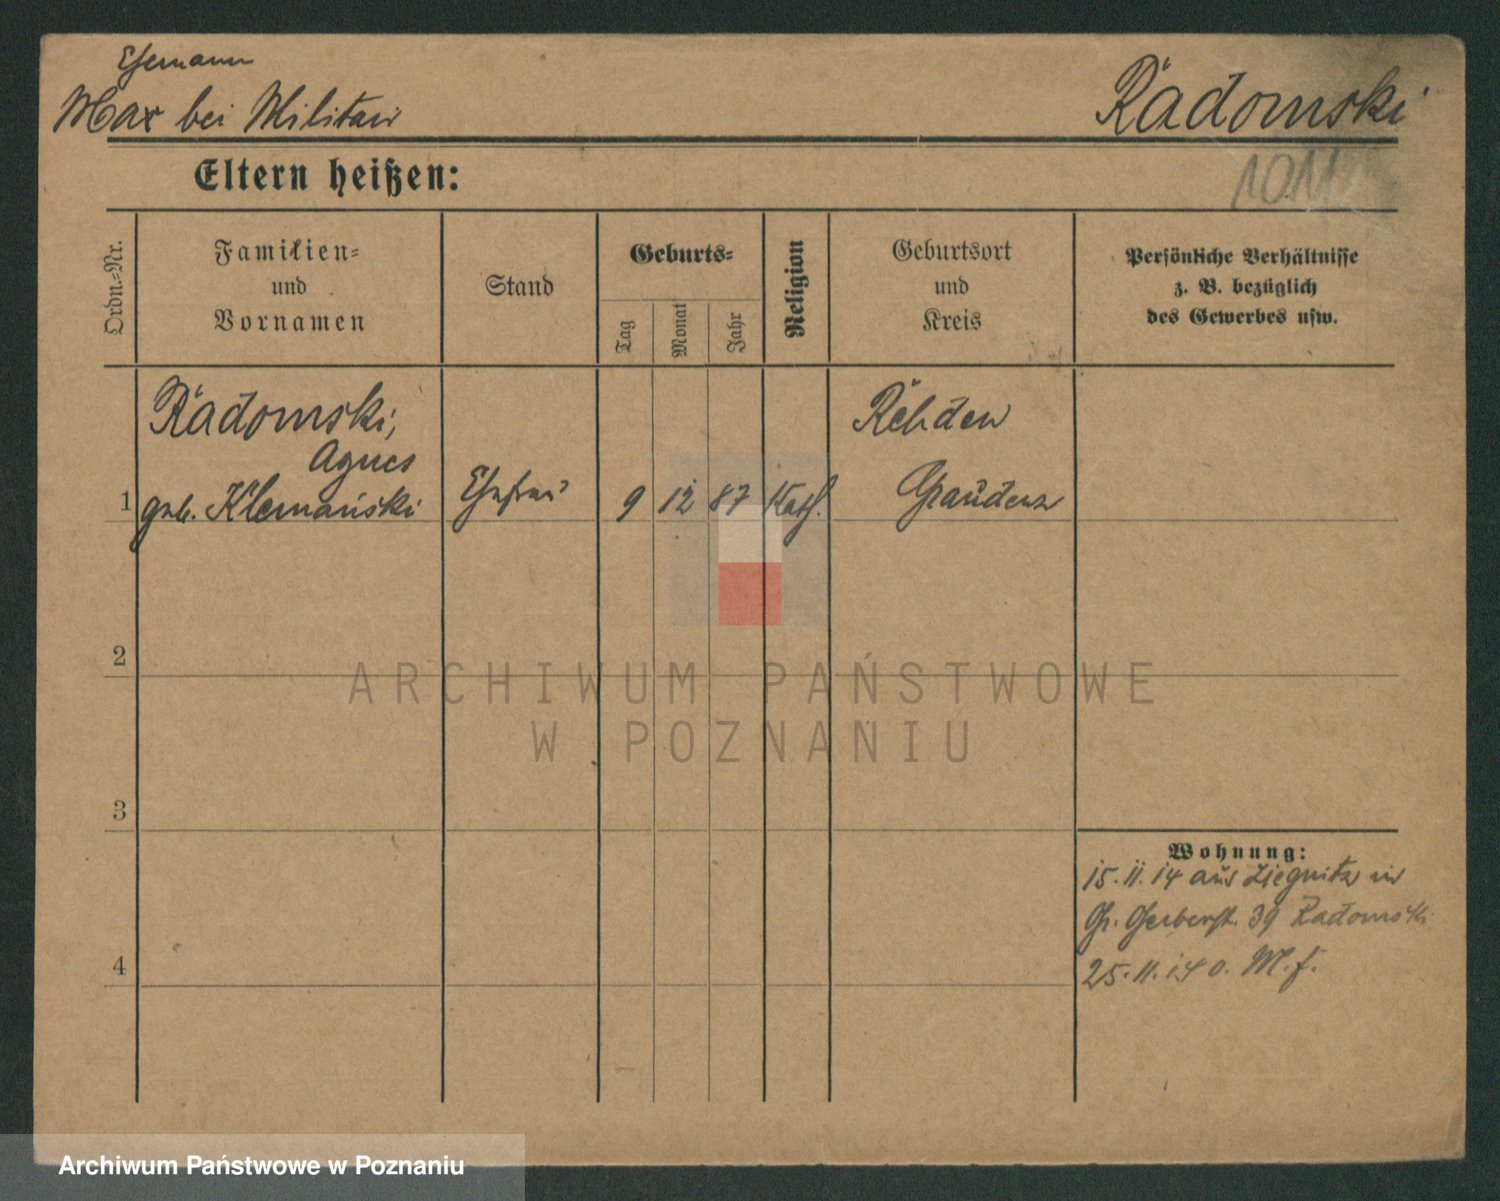 Ehemann
Max bei Militair
Radomski
101
Eltern heißen:
Ordn.=Nr.
Familien=
und
Vornamen
Stand
Geburts=
Tag
Monat
Jahr
Religion
Geburtsort
und
Kreis
Persönliche Verhältnisse
z. B. bezüglich
des Gewerbes usw.
Radomski,
Agnes
1 geb. Klemański Ehefrau 9 12 87 Kath.
Rehden
Graudenz
2
3
4
Wohnung:
15.11.14 aus Liegnitz in
Gr. Gerberstr. 39 Radomski
25.11.14 o. M. f.
ARCHIWUM PAŃSTWOWE
W POZNANIU
Archiwum Państwowe w Poznaniu